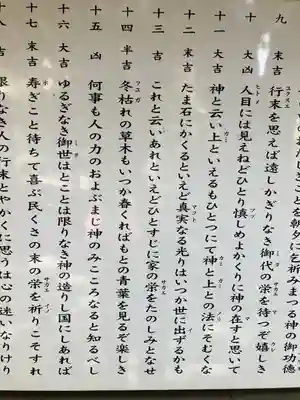 とを朝に乞祈みまつる神の御功徳
九 末吉 行末を思えば遠しかぎりなき御代の栄を待つぞ嬉しき
十 小吉 人目には見えねどひとり慎しめよかくりに神の在すと思いて
十一 大吉 神と云い上といえるもひとつにて神と上との法にそむくな
十二 末吉 たま石にかくるといえど真実なる光りはいつか世に出ずるかも
十三 吉 これと云いあれといえどひとすじに家の栄をたのしみとなせ
十四 半吉 冬枯れの草木もいつか春くればもとの青葉を見るぞ楽しき
十五 凶 何事も人の力のおよぶまじ神のみこころなると知るべし
十六 大吉 ゆるぎなき御世はとことは限りなき神の造りし国にしあれば
十七 末吉 寿ぎこと待ちて喜ぶ民くさの末の栄を祈りこそすれ
十八 吉 限りなき人の行末とやかくに思うは心の迷いなりけり